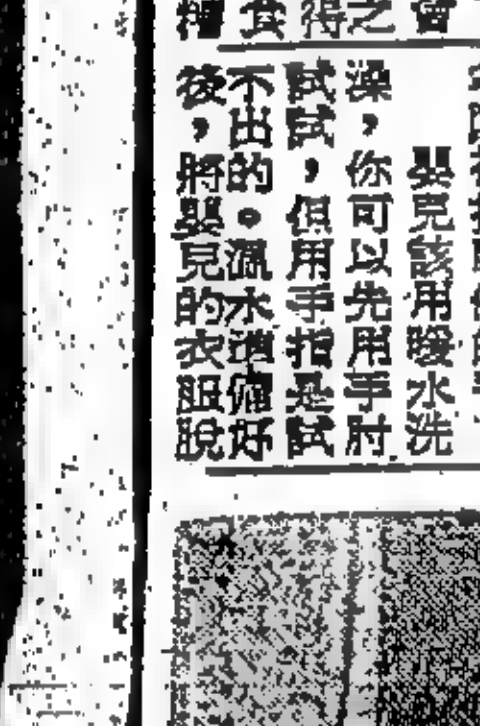 嬰兒該用暖水洗
澡，你可以先用手肘
試試，但用手指是試
不出的。溫水準備好
後，將嬰兒的衣服脫
曾
之
得
食